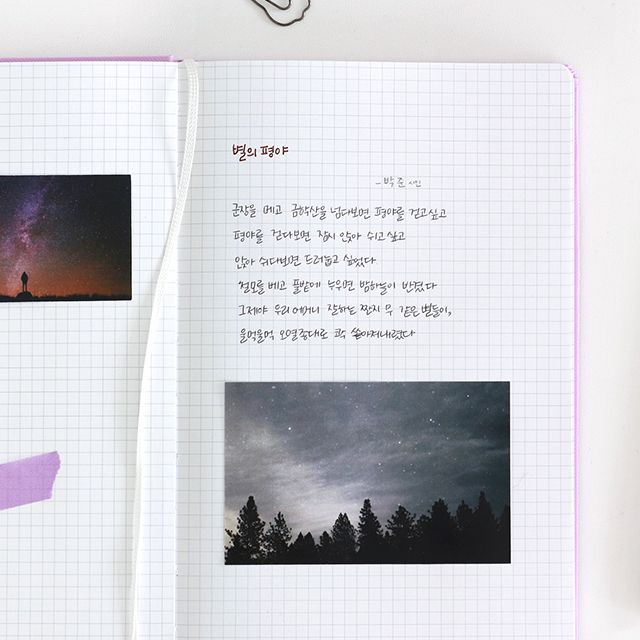 별의 평야
- 박준 시인
군장을 메고 금학산을 넘다보면 평야를 걷고싶고
평야를 걷다보면 잠시 앉아 쉬고 싶고
앉아 쉬다보면 드러눕고 싶었다
철모를 베고 풀밭에 누우면 밤하늘이 반겼다
그제야 우리 어머니 잘하는 짠지 무 같은 별들이,
울먹울먹 오열종대로 콱 쏟아져내렸다